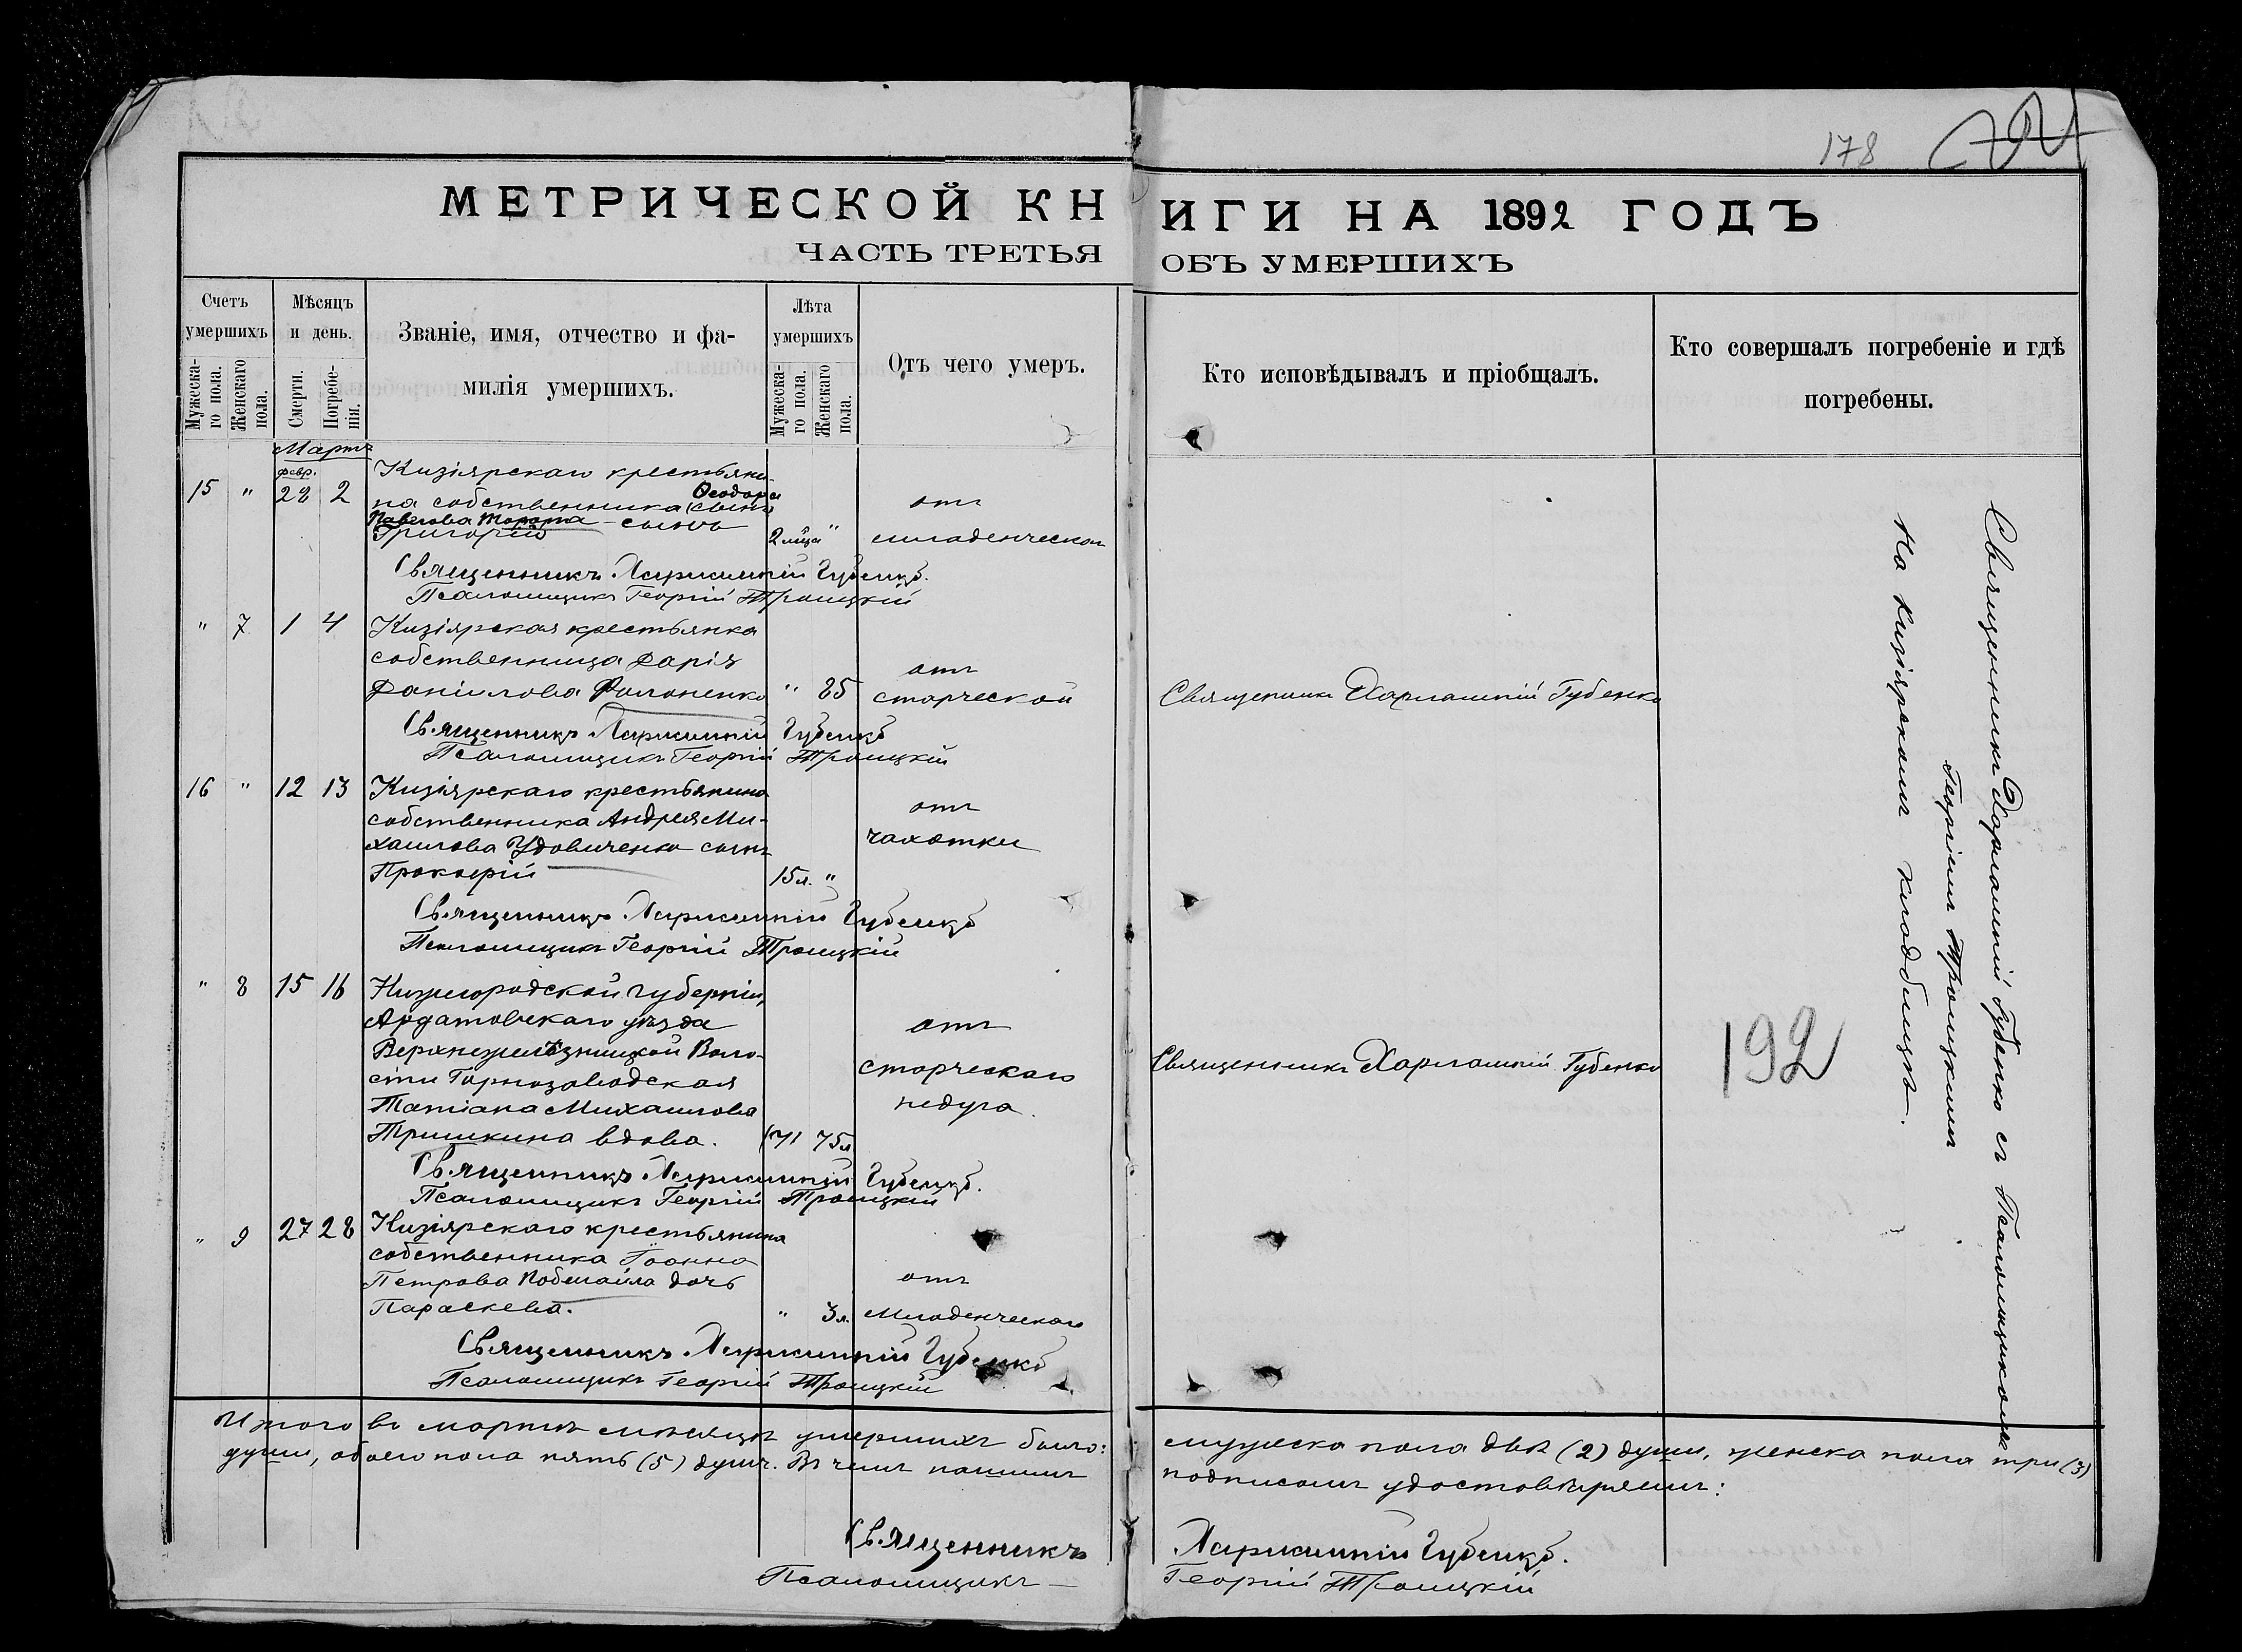 178
МЕТРИЧЕСКОЙ КНИГИ НА 1892 ГОДЪ
ЧАСТЬ ТРЕТЬЯ ОБЪ УМЕРШИХЪ
Счетъ умершихъ
Мужеска-го пола.
Женскаго пола.
Мѣсяцъ и день.
Смерти.
Погребе-нія.
Званіе, имя, отчество и фа-
милія умершихъ.
Лѣта умершихъ
Мужеска-го пола.
Женскаго пола.
Отъ чего умеръ.
Кто исповѣдывалъ и пріобщалъ.
Кто совершалъ погребеніе и гдѣ
погребены.
Мартъ
февр.
15 " 28 2 Кизіярскаго крестьяни-
на собственника Ѳеодора отъ
Павлова сынъ
Григорій 2 мѣца " младенческой
Священникъ Харлампій Губенко.
Псаломщикъ Георгій Троицкій
" 7 1 4 Кизіярская крестьянка
собственница Дарія отъ
Даніилова " 85 старческой Священникъ Харлампій Губенко
Священникъ Харлампій Губенко
Псаломщикъ Георгій Троицкій
16 " 12 13 Кизіярскаго крестьянина
собственника Андрея Ми- отъ
хаилова Удовиченко сынъ чахотки
Прокопій 15 л. "
Священникъ Харлампій Губенко
Псаломщикъ Георгій Троицкій
" 8 15 16 Нижегородской губерніи,
Ардатовскаго уѣзда отъ
Верхнежелѣзницкой Воло-
сти Горнозаводская старческаго Священникъ Харлампій Губенко
Татіана Михаилова недуга.
Тришкина вдова. 75 л
Священникъ Харлампій Губенко.
Псаломщикъ Георгій Троицкій
" 9 27 28 Кизіярскаго крестьянина
собственника Іоанна
Петрова дочь отъ
Параскева. " 3 л. младенческаго
Священникъ Харлампій Губенко
Псаломщикъ Георгій Троицкій
Священникъ Харлампій Губенко съ Псаломщикомъ
Георгіемъ Троицкимъ
На Кизіярскомъ кладбищѣ.
192
Итого въ мартѣ мѣсяцѣ умершихъ было: мужеска пола двѣ (2) души, женска пола три (3)
души, обоего пола пять (5) душъ. Въ чемъ нашимъ подписомъ удостовѣряемъ:
Священникъ Харлампій Губенко.
Псаломщикъ — Георгій Троицкій